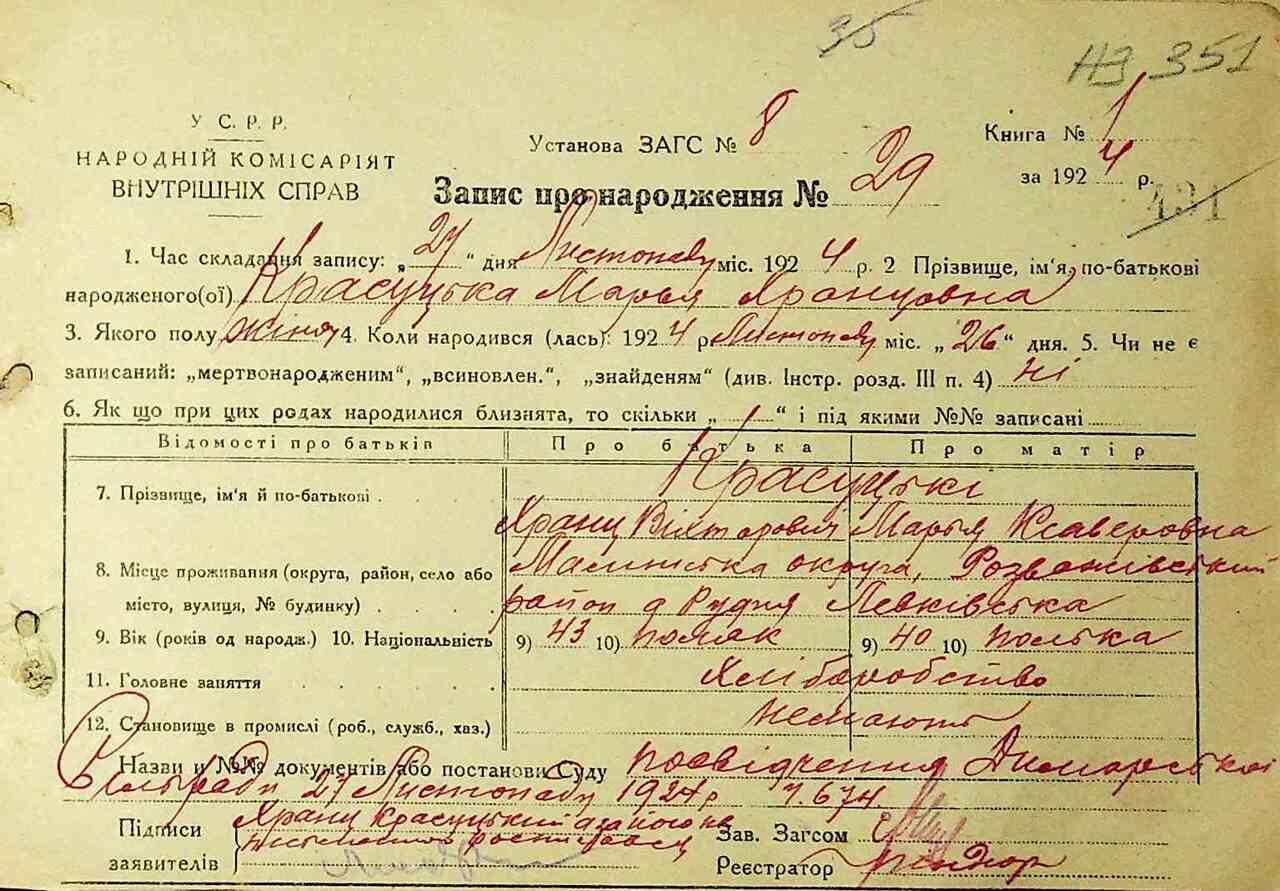 35
НЗ 351
У С. Р. Р.
НАРОДНІЙ КОМІСАРІЯТ
ВНУТРІШНІХ СПРАВ
Установа ЗАГС № 8
Книга № 1
за 1924 р.
Запис про народження № 29
431
1. Час складання запису: „27“ дня Листопаду міс. 1924 р. 2 Прізвище, ім'я, по-батькові
народженого(ої) Красуцька Марья Хранцовна
3. Якого полу жіноч 4. Коли народився (лась): 1924 р Листопаду міс. „26“ дня. 5. Чи не є
записаний: „мертвонародженим“, „всиновлен.“, „знайденям“ (див. Інстр. розд. III п. 4) ні
6. Як що при цих родах народилися близнята, то скільки „ “ і під якими №№ записані
Відомості про батьків Про батька Про матір
7. Прізвище, ім'я й по-батькові Красуцькі
Хранц Вікторович Марья Ксаверовна
8. Місце проживання (округа, район, село або Малинська округа, Розважівський
місто, вулиця, № будинку) район д Рудня Левківська
9. Вік (років од народж.) 10. Національність 9) 43 10) поляк 9) 40 10) полька
11. Головне заняття Хліборобство
12. Становище в промислі (роб., служб., хаз.) немають
Назви и №№ документів або постанови Суду посвідчення Димарської
Сільради 27 Листопаду 1924 р 4.674
Підписи Хранц Красуцький а за його не
заявителів
Зав. Загсом
Реєстратор